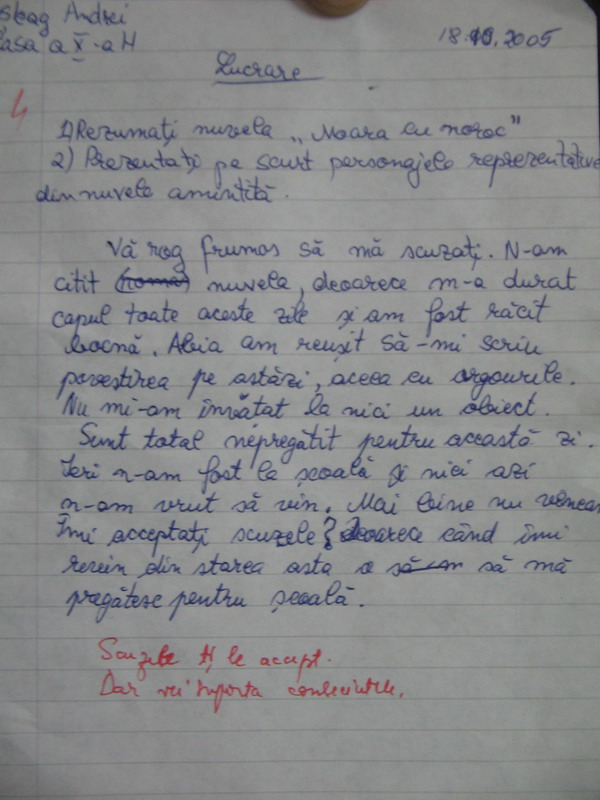 Andrei
a X-a H
18.10.2005
Lucrare
4
1) Rezumați nuvela „Moara cu noroc”
2) Prezentați pe scurt personajele reprezentative
din nuvela amintită.
Vă rog frumos să mă scuzați. N-am
citit nuvela, deoarece m-a durat
capul toate aceste zile și am fost răcit
bocnă. Abia am reușit să-mi scriu
povestirea pe astăzi, aceea cu argourile.
Nu mi-am învățat la nici un obiect.
Sunt total nepregătit pentru această zi.
Ieri n-am fost la școală și nici azi
n-am vrut să vin. Mai bine nu veneam
Îmi acceptați scuzele? deoarece când îmi
revin din starea asta o să mă
pregătesc pentru școală.
Scuzele ți le accept.
Dar vei suporta consecințele.